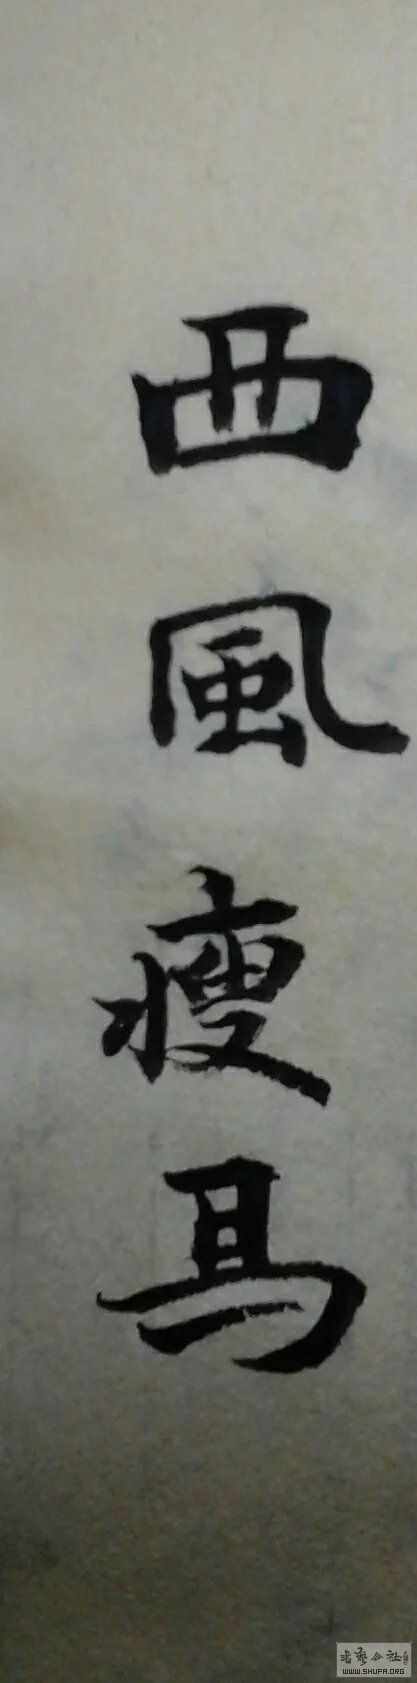 西風瘦馬
書藝公社
WWW.SHUFA.ORG